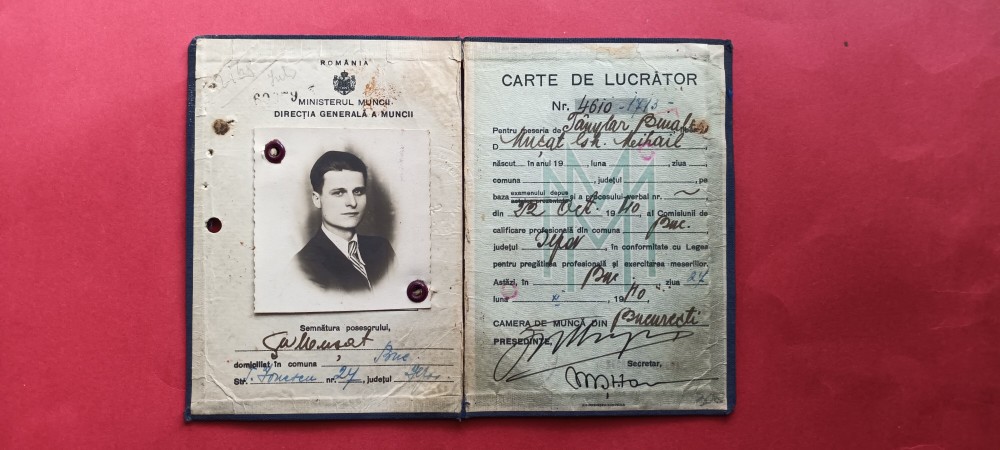 ROMÂNIA
MINISTERUL MUNCII
DIRECȚIA GENERALĂ A MUNCII
Semnătura posesorului,
domiciliat în comuna Buc.
Str. Ionescu nr. 27, județul Ilfov.
CARTE DE LUCRĂTOR
Nr. 4610
Pentru meseria de
D Mușat Gh. Mihail
născut în anul 19 , luna , ziua ,
comuna , județul , pe
baza examenului depus și a procesului-verbal nr. ~
din 22 Oct. 1940, al Comisiunii de
calificare profesională din comuna Buc.
județul Ilfov, în conformitate cu Legea
pentru pregătirea profesională și exercitarea meseriilor.
Astăzi, în Buc. ziua
luna , 1940,
CAMERA DE MUNCĂ DIN București
PREȘEDINTE,
Secretar,